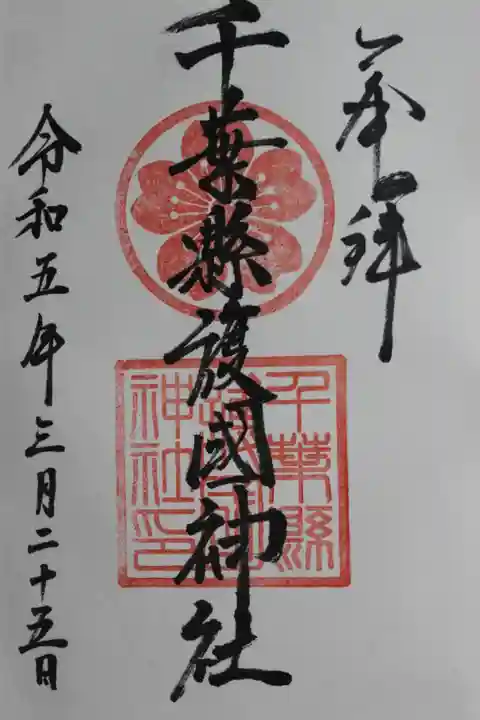 奉拝
千葉縣護國神社
令和五年三月二十五日
千葉縣
護國
神社印